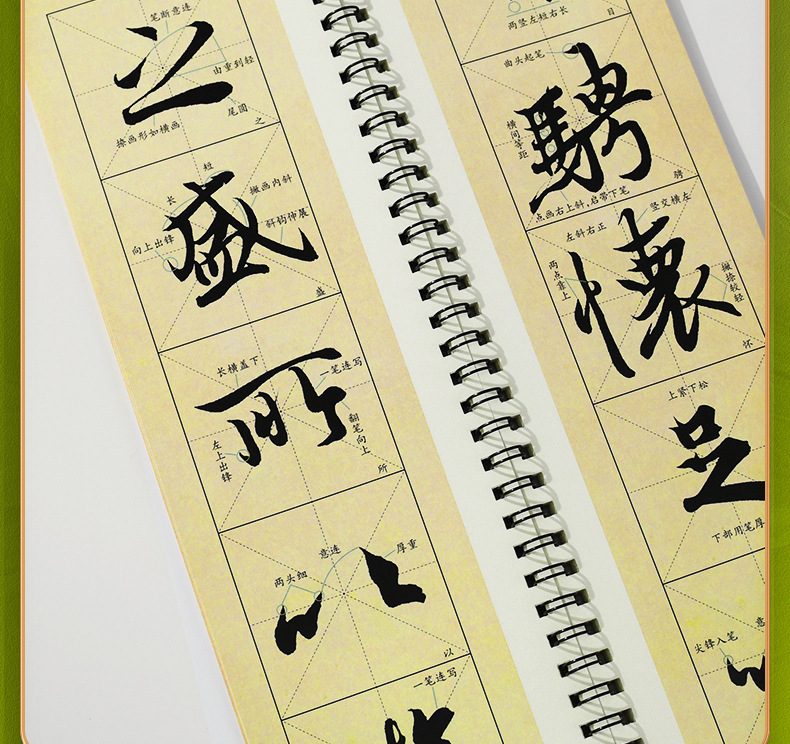 之
笔断意连
由重到轻
尾圆
捺画形如横画
之
盛
短
长
撇画内斜
斜钩伸展
向上出锋
盛
所
长横盖下
一笔连写
翻笔向上
左上出锋
所
以
意连
厚重
两头细
以
一笔连写
两竖左短右长
目
騁
曲头起笔
横间等距
点画右上斜,启带下笔
骋
懷
竖交横左
左斜右正
两点靠上
撇捺较轻
怀
足
上紧下松
下部用笔厚
尖锋入笔
意